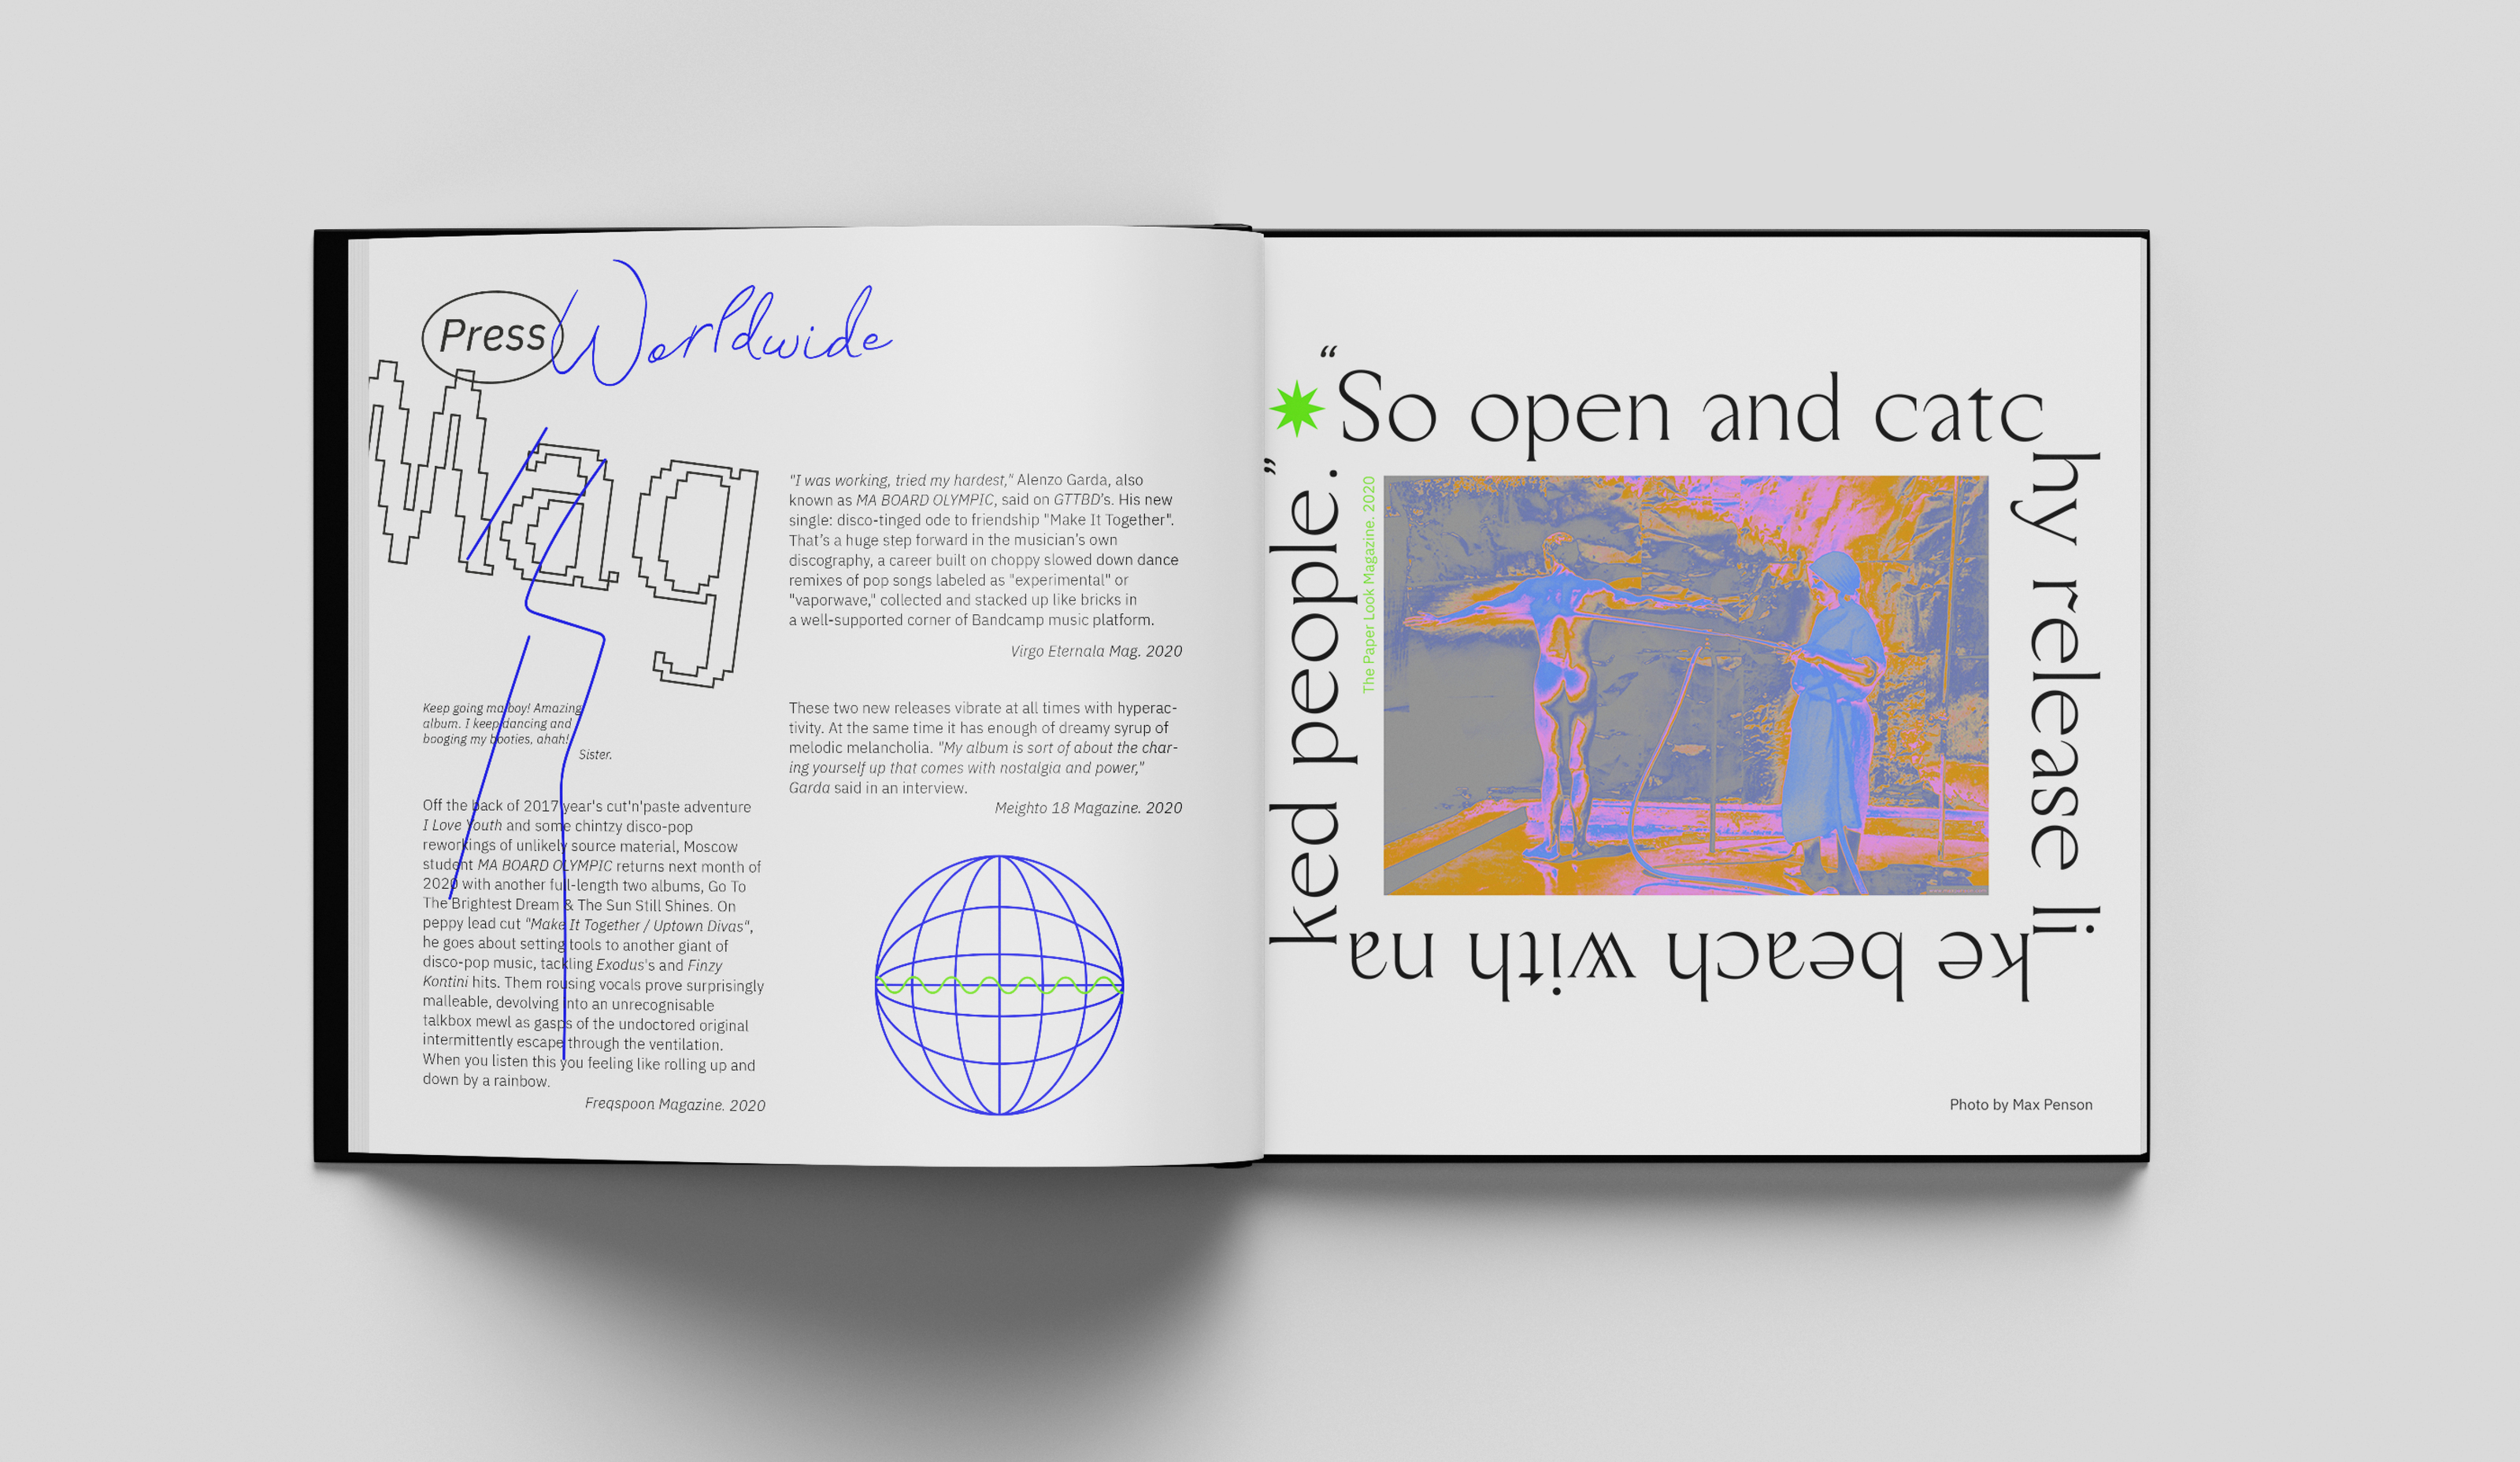 Press Worldwide
Mag
"I was working, tried my hardest," Alenzo Garda, also
known as MA BOARD OLYMPIC, said on GTTBD's. His new
single: disco-tinged ode to friendship "Make It Together".
That's a huge step forward in the musician's own
discography, a career built on choppy slowed down dance
remixes of pop songs labeled as "experimental" or
"vaporwave," collected and stacked up like bricks in
a well-supported corner of Bandcamp music platform.
Virgo Eternala Mag. 2020
Keep going ma boy! Amazing
album. I keep dancing and
booging my booties, ahah!
Sister.
These two new releases vibrate at all times with hyperac-
tivity. At the same time it has enough of dreamy syrup of
melodic melancholia. "My album is sort of about the char-
ing yourself up that comes with nostalgia and power,"
Garda said in an interview.
Meighto 18 Magazine. 2020
Off the back of 2017 year's cut'n'paste adventure
I Love Youth and some chintzy disco-pop
reworkings of unlikely source material, Moscow
student MA BOARD OLYMPIC returns next month of
2020 with another full-length two albums, Go To
The Brightest Dream & The Sun Still Shines. On
peppy lead cut "Make It Together / Uptown Divas",
he goes about setting tools to another giant of
disco-pop music, tackling Exodus's and Finzy
Kontini hits. Them rousing vocals prove surprisingly
malleable, devolving into an unrecognisable
talkbox mewl as gasps of the undoctored original
intermittently escape through the ventilation.
When you listen this you feeling like rolling up and
down by a rainbow.
Freqspoon Magazine. 2020
“So open and catc
hy release li
ke beach with na
ked people.”
The Paper Look Magazine. 2020
Photo by Max Penson